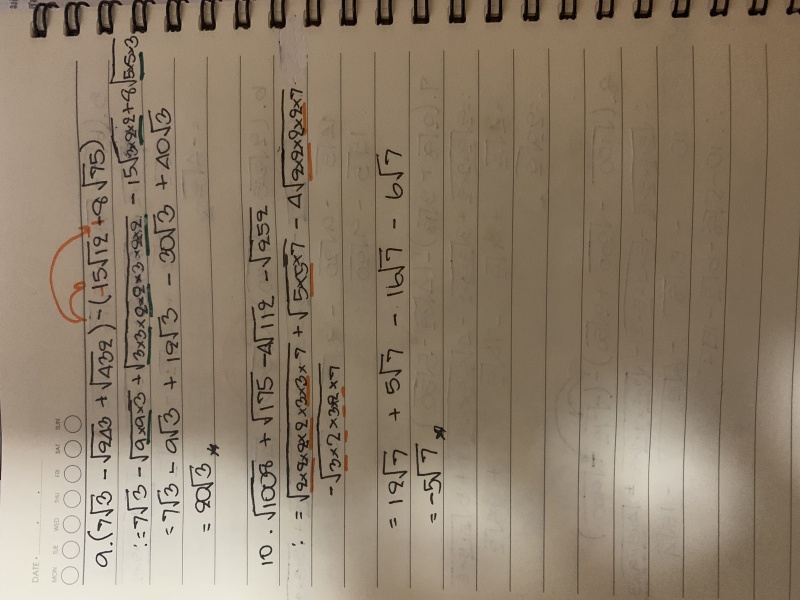 DATE.
MON TUE WED THU FRI SAT SUN
9.(7√3 - √243 + √432) - (-15√12 + 8√75)
: = 7√3 - √9×9×3 + √3×3×2×2×3×2×2 - 15√3×2×2 + 8√5×5×3
= 7√3 - 9√3 + 12√3 - 30√3 + 40√3
= 20√3
10. √1008 + √175 - 4√112 - √252
: = √2×2×2×2×3×3×7 + √5×5×7 - 4√2×2×2×2×7
- √3×2×3×2×7
= 12√7 + 5√7 - 16√7 - 6√7
= -5√7